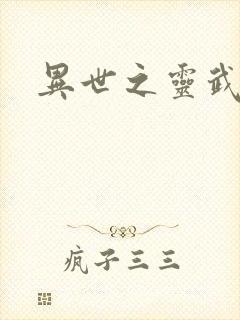 異世之靈武
疯子三三